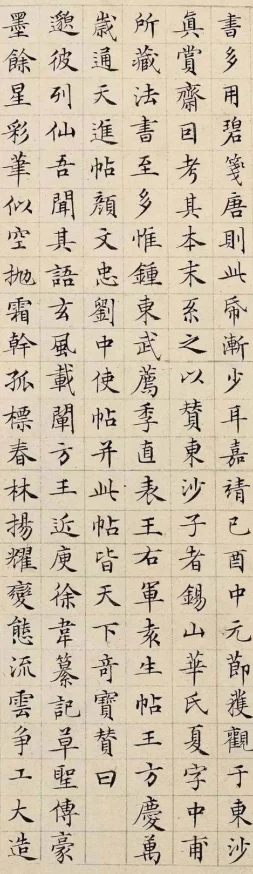 書多用碧箋唐則此帋漸少耳嘉靖己酉中元節獲觀于東沙
真賞齋囙考其本末系之以贊東沙子者錫山華氏夏字中甫
所藏法書至多惟鍾東武薦季直表王右軍袁生帖王方慶萬
歲通天進帖顏文忠劉中使帖并此帖皆天下奇寶贊曰
邈彼列仙吾聞其語玄風載闡方王近庾徐韋纂記草聖傳豪
墨餘星彩筆似空拋霜幹孤標春林揚耀變態流雲爭工大造